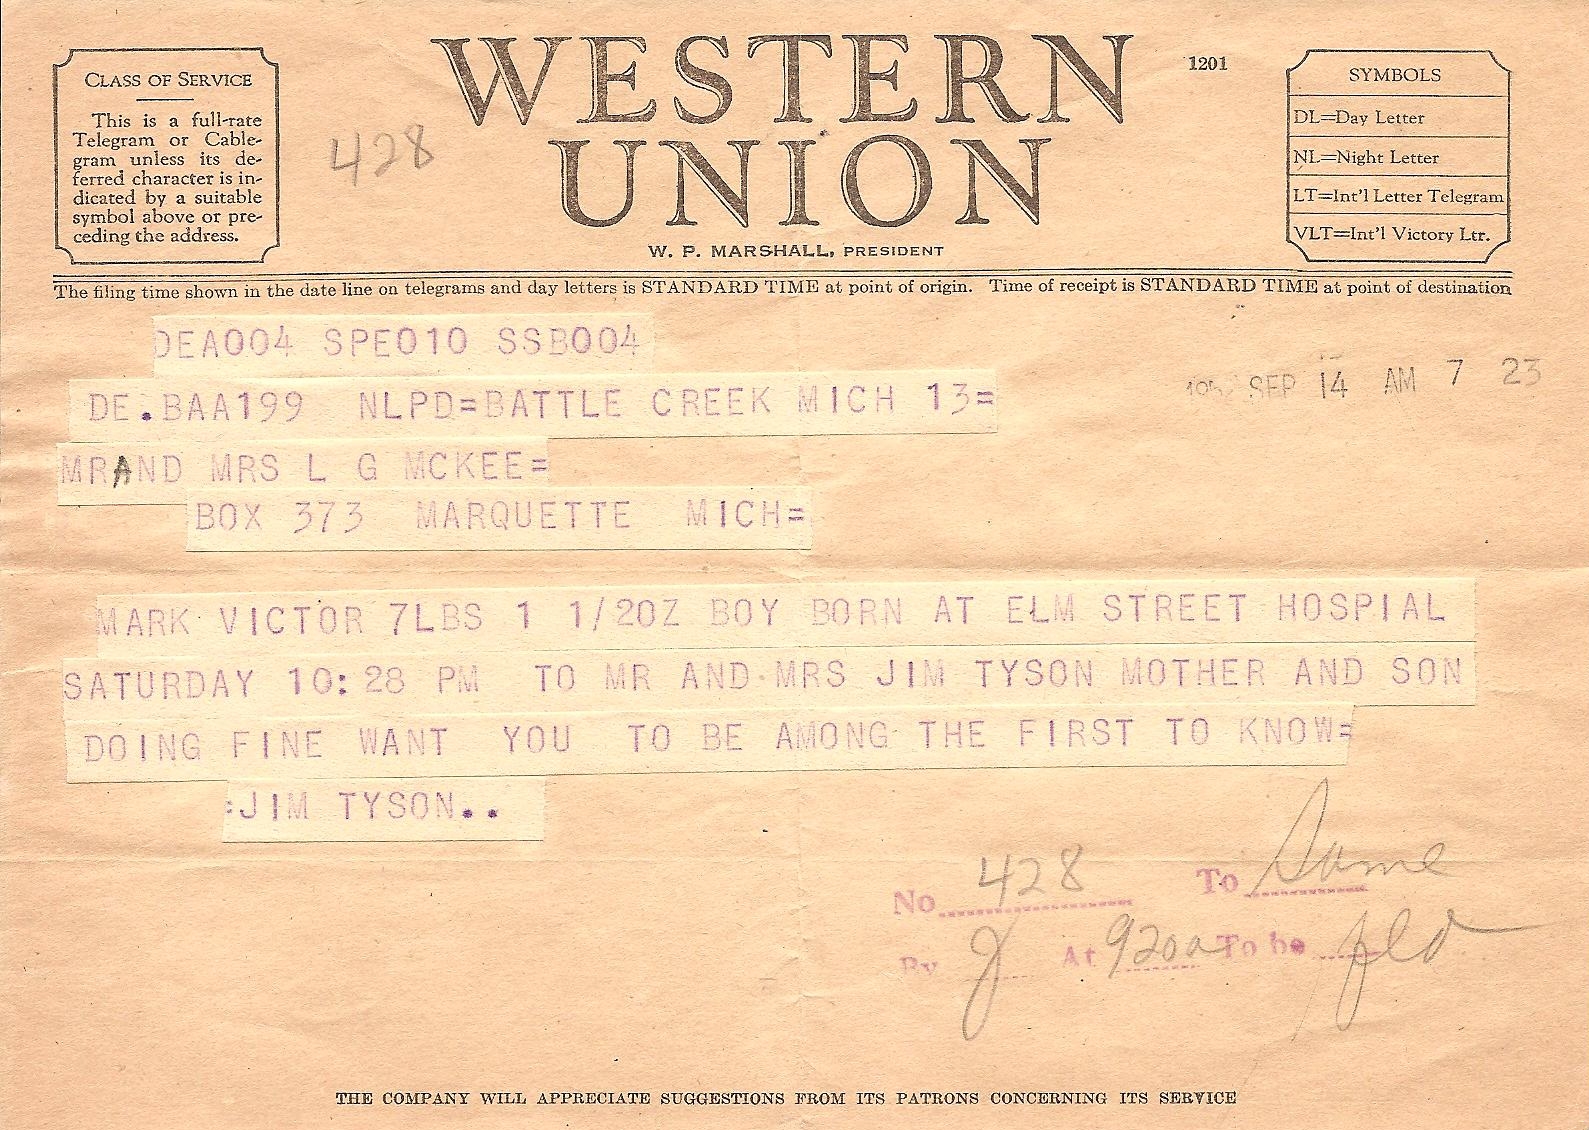 WESTERN
UNION
1201
W. P. MARSHALL, PRESIDENT
CLASS OF SERVICE
This is a full-rate
Telegram or Cable-
gram unless its de-
ferred character is in-
dicated by a suitable
symbol above or pre-
ceding the address.
428
SYMBOLS
DL=Day Letter
NL=Night Letter
LT=Int'l Letter Telegram
VLT=Int'l Victory Ltr.
The filing time shown in the date line on telegrams and day letters is STANDARD TIME at point of origin. Time of receipt is STANDARD TIME at point of destination
DEA004 SPE010 SSB004
DE.BAA199 NLPD=BATTLE CREEK MICH 13=
SEP 14 AM 7 23
MRAND MRS L G MCKEE=
BOX 373 MARQUETTE MICH=
MARK VICTOR 7LBS 1 1/2OZ BOY BORN AT ELM STREET HOSPIAL
SATURDAY 10:28 PM TO MR AND MRS JIM TYSON MOTHER AND SON
DOING FINE WANT YOU TO BE AMONG THE FIRST TO KNOW=
=JIM TYSON..
No 428 To Same
By J At 920a To be pld
THE COMPANY WILL APPRECIATE SUGGESTIONS FROM ITS PATRONS CONCERNING ITS SERVICE